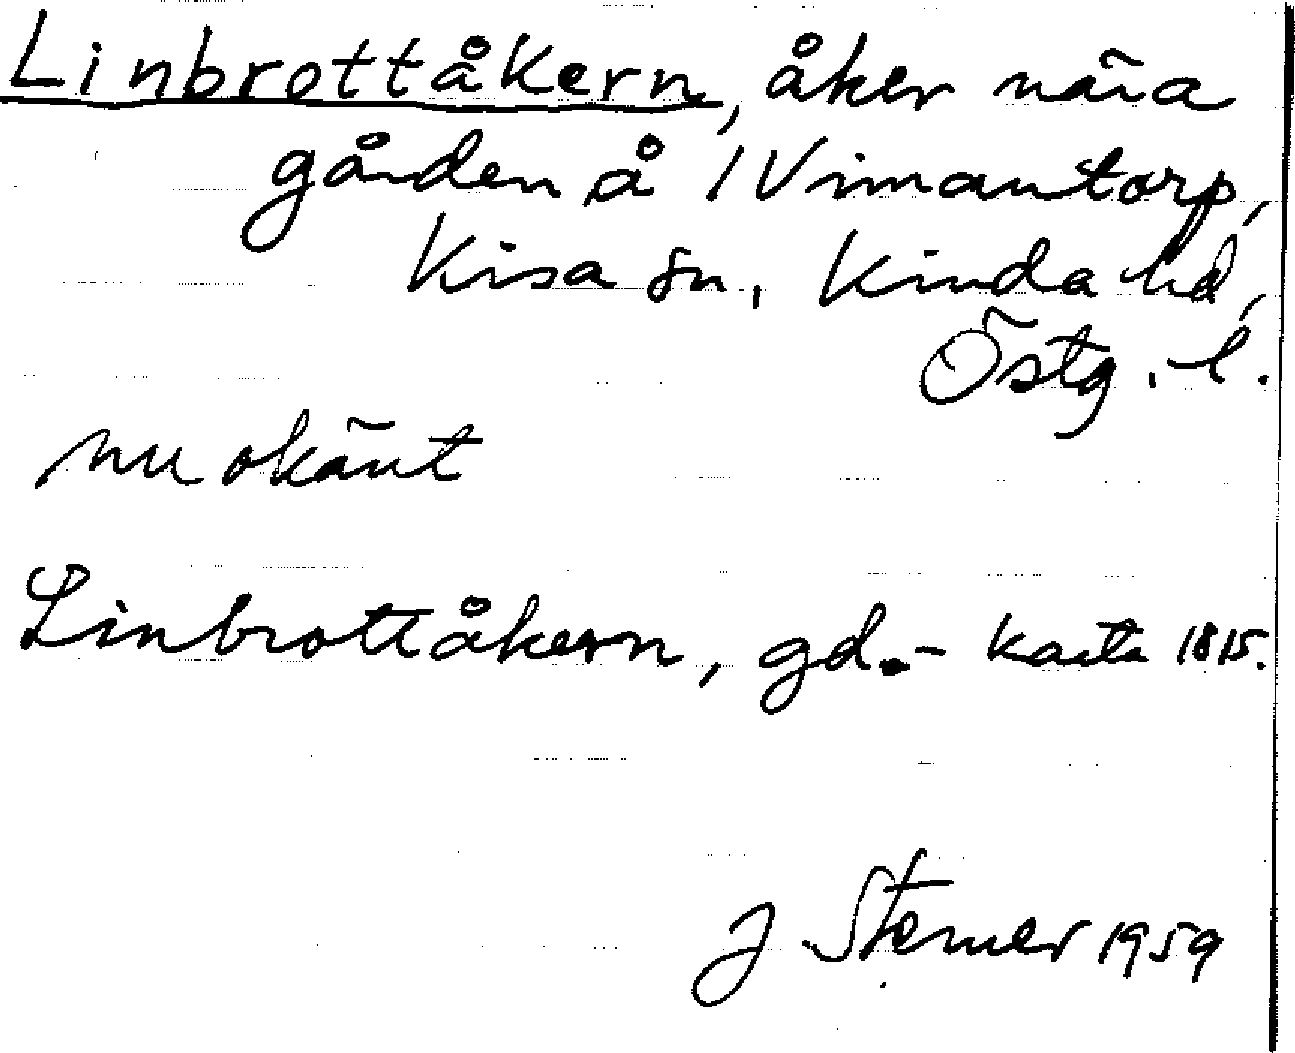 Linbrottåkern, åker nära
gården å 1 Vimantorp,
Kisa sn, Kinda hd,
Östg. l.
nu okänt
Linbrottåkern, gd. - karta 1815.
J Sterner 1959